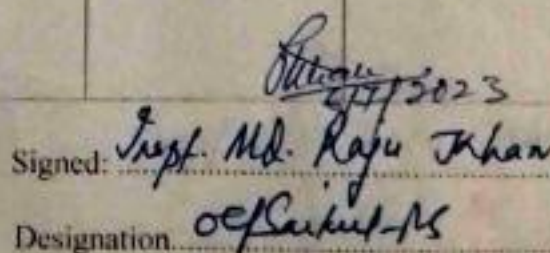 /2023
Signed: Inspt. Md. Raju Khan
Designation OC/Saikul-PS